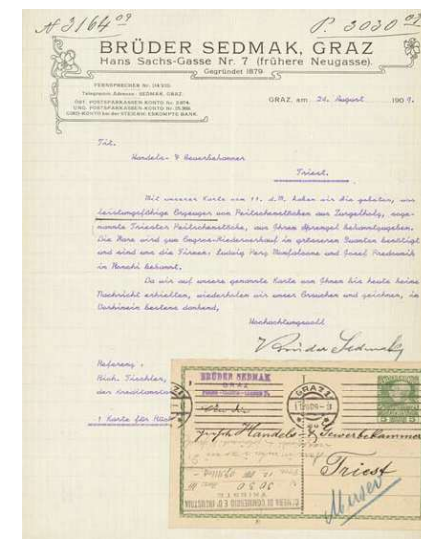 N 3164 09
P. 3030 09
BRÜDER SEDMAK, GRAZ
Hans Sachs-Gasse Nr. 7 (frühere Neugasse).
Gegründet 1879.
FERNSPRECHER Nr.
Telegramm-Adresse: SEDMAK, GRAZ.
ÖST. POSTSPARKASSEN-KONTO Nr.
UNG. POSTSPARKASSEN-KONTO Nr.
GIRO-KONTO bei der STEIERM. ESKOMPTE-BANK.
GRAZ, am 24. August 1909.
Tit.
Handels- & Gewerbekammer
Triest.
Mit unserer Karte vom 11. d.M. haben wir Sie gebeten, uns
leistungsfähige Erzeuger von Peitschenstöcken aus Zürgelholz, soge-
nannte Triester Peitschenstöcke, aus Ihrem Sprengel bekanntzugeben.
Die Ware wird zum Engros-Wiederverkauf in grösseren Quanten benötigt
und sind uns die Firmen: Ludwig Monfalcone und Josef
in Ronchi bekannt.
Da wir auf unsere genannte Karte von Ihnen bis heute keine
Nachricht erhielten, wiederholen wir unser Ersuchen und zeichnen, im
Vorhinein bestens dankend,
Hochachtungsvoll
Brüder Sedmak
Referenz:
Rich. Tischler,
der
1 Karte für
BRÜDER SEDMAK
GRAZ
GRAZ 1
An die
Handels- & Gewerbekammer
Triest
CAMERA DI COMMERCIO E D'INDUSTRIA
TRIESTE
3030
5